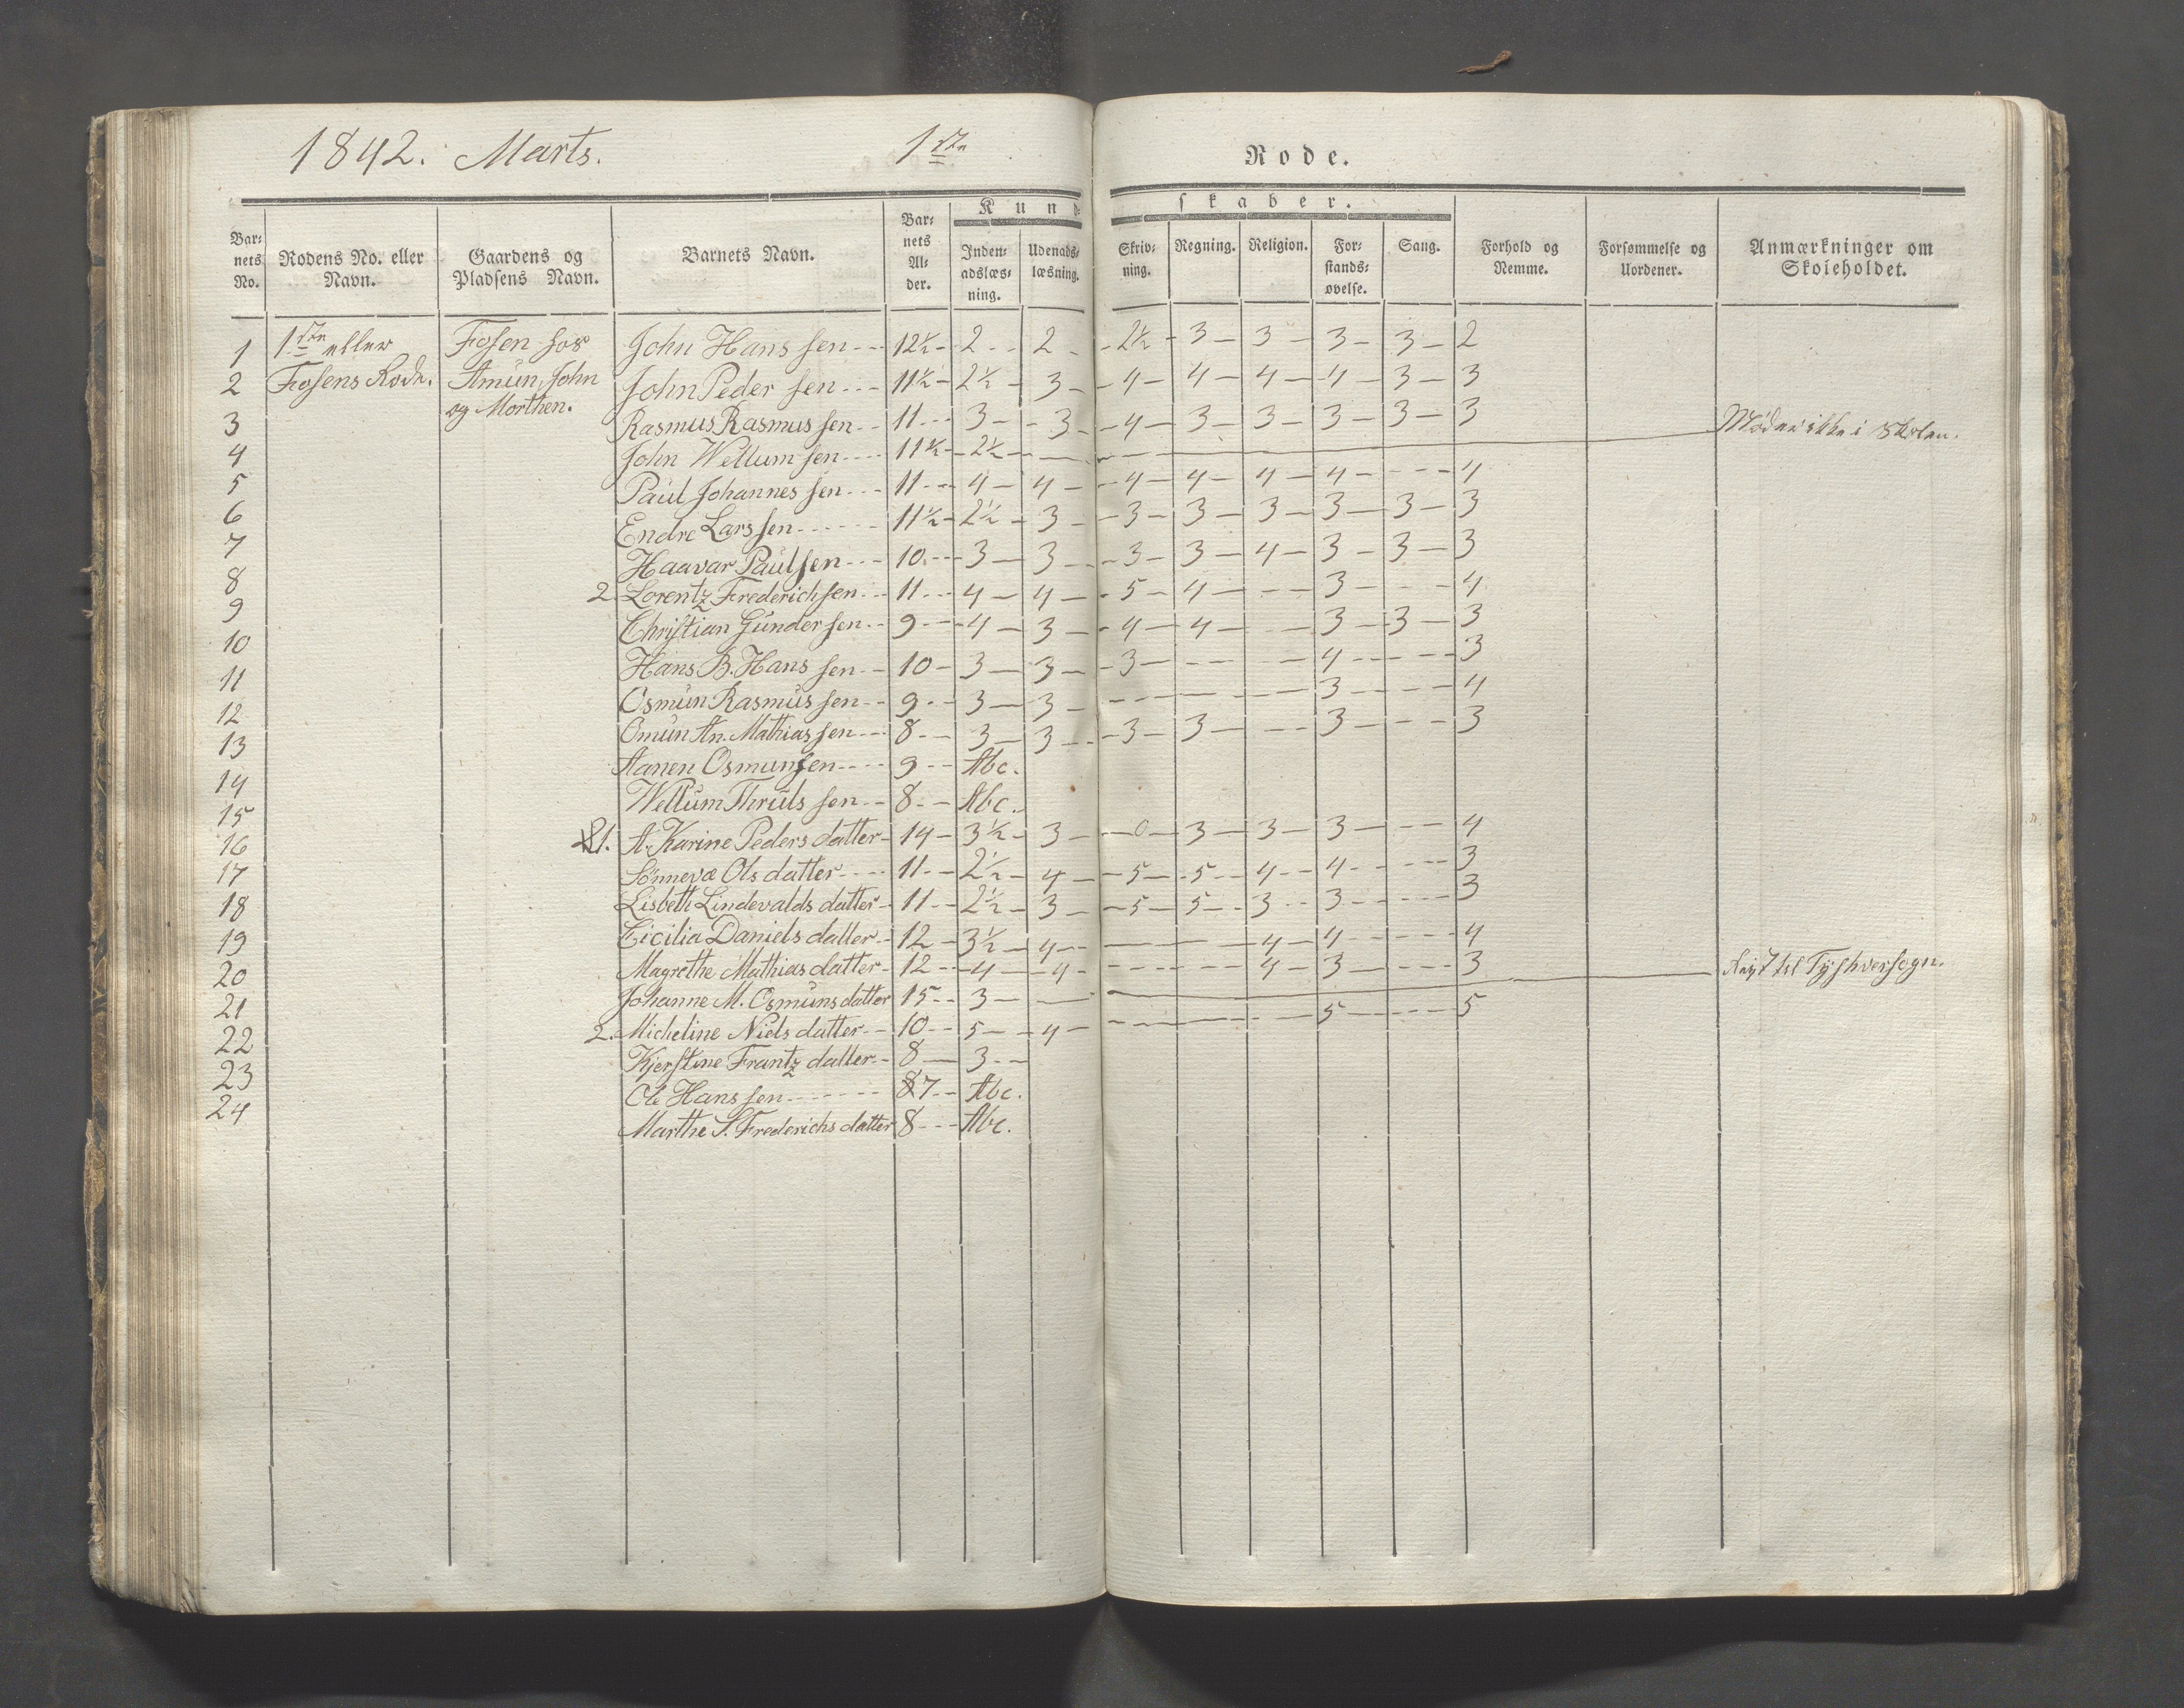 1842. Marts. 1ste Rode.
Kundskaber.
Barnets No. Rodens No. eller Navn. Gaardens og Pladsens Navn. Barnets Navn. Barnets Alder. Indenadslæsning. Udenadslæsning. Skrivning. Regning. Religion. Forstandsøvelse. Sang. Forhold og Nemme. Forsømmelse og Uordener. Anmærkninger om Skoleholdet.
1 1ste eller Fosen hos John Hanssen 12½ 2 2 2½ 3 3 3 3 2
2 Fosens Rode. Amun, John John Pedersen 11½ 2½ 3 4 4 4 4 3 3
og Morthen.
3 Rasmus Rasmussen 11 3 3 4 3 3 3 3 3
4 John Wellumsen 11½ 2½ Møder ikke i Skolen.
5 Paul Johannessen 11 4 4 4 4 4 4 - 4
6 Endre Larssen 11½ 2½ 3 3 3 3 3 3 3
7 Haavar Paulsen 10 3 3 3 3 4 3 3 3
8 2. Lorentz Frederichsen 11 4 4 5 4 - 3 - 4
9 Christian Gundersen 9 4 3 4 4 - 3 3 3
10 Hans B. Hanssen 10 3 3 3 - - 4 - 3
11 Osmun Rasmussen 9 3 3 - - - 3 - 4
12 Omun An. Mathiassen 8 3 3 3 3 - 3 - 3
13 Aanen Osmunsen 9 Abc.
14 Wellum Thrulssen 8 Abc.
15 1. A. Karine Pedersdatter 14 3½ 3 0 3 3 3 - 4
16 Sønnevæ Olsdatter 11 2½ 4 5 5 4 4 - 3
17 Lisbeth Lindevaldsdatter 11 2½ 3 5 5 3 3 - 3
18 Cicilia Danielsdatter 12 3½ 4 - - 4 4 - 4
19 Magrethe Mathiasdatter 12 4 4 - - 4 3 - 3
20 Johanne M. Osmunsdatter 15 3 - til Tysversogn.
21 2. Micheline Nielsdatter 10 5 4 - - - 5 - 5
22 Kjerstine Frantzdatter 8 3
23 Ole Hanssen 7 Abc.
24 Marthe S. Frederichsdatter 8 Abc.